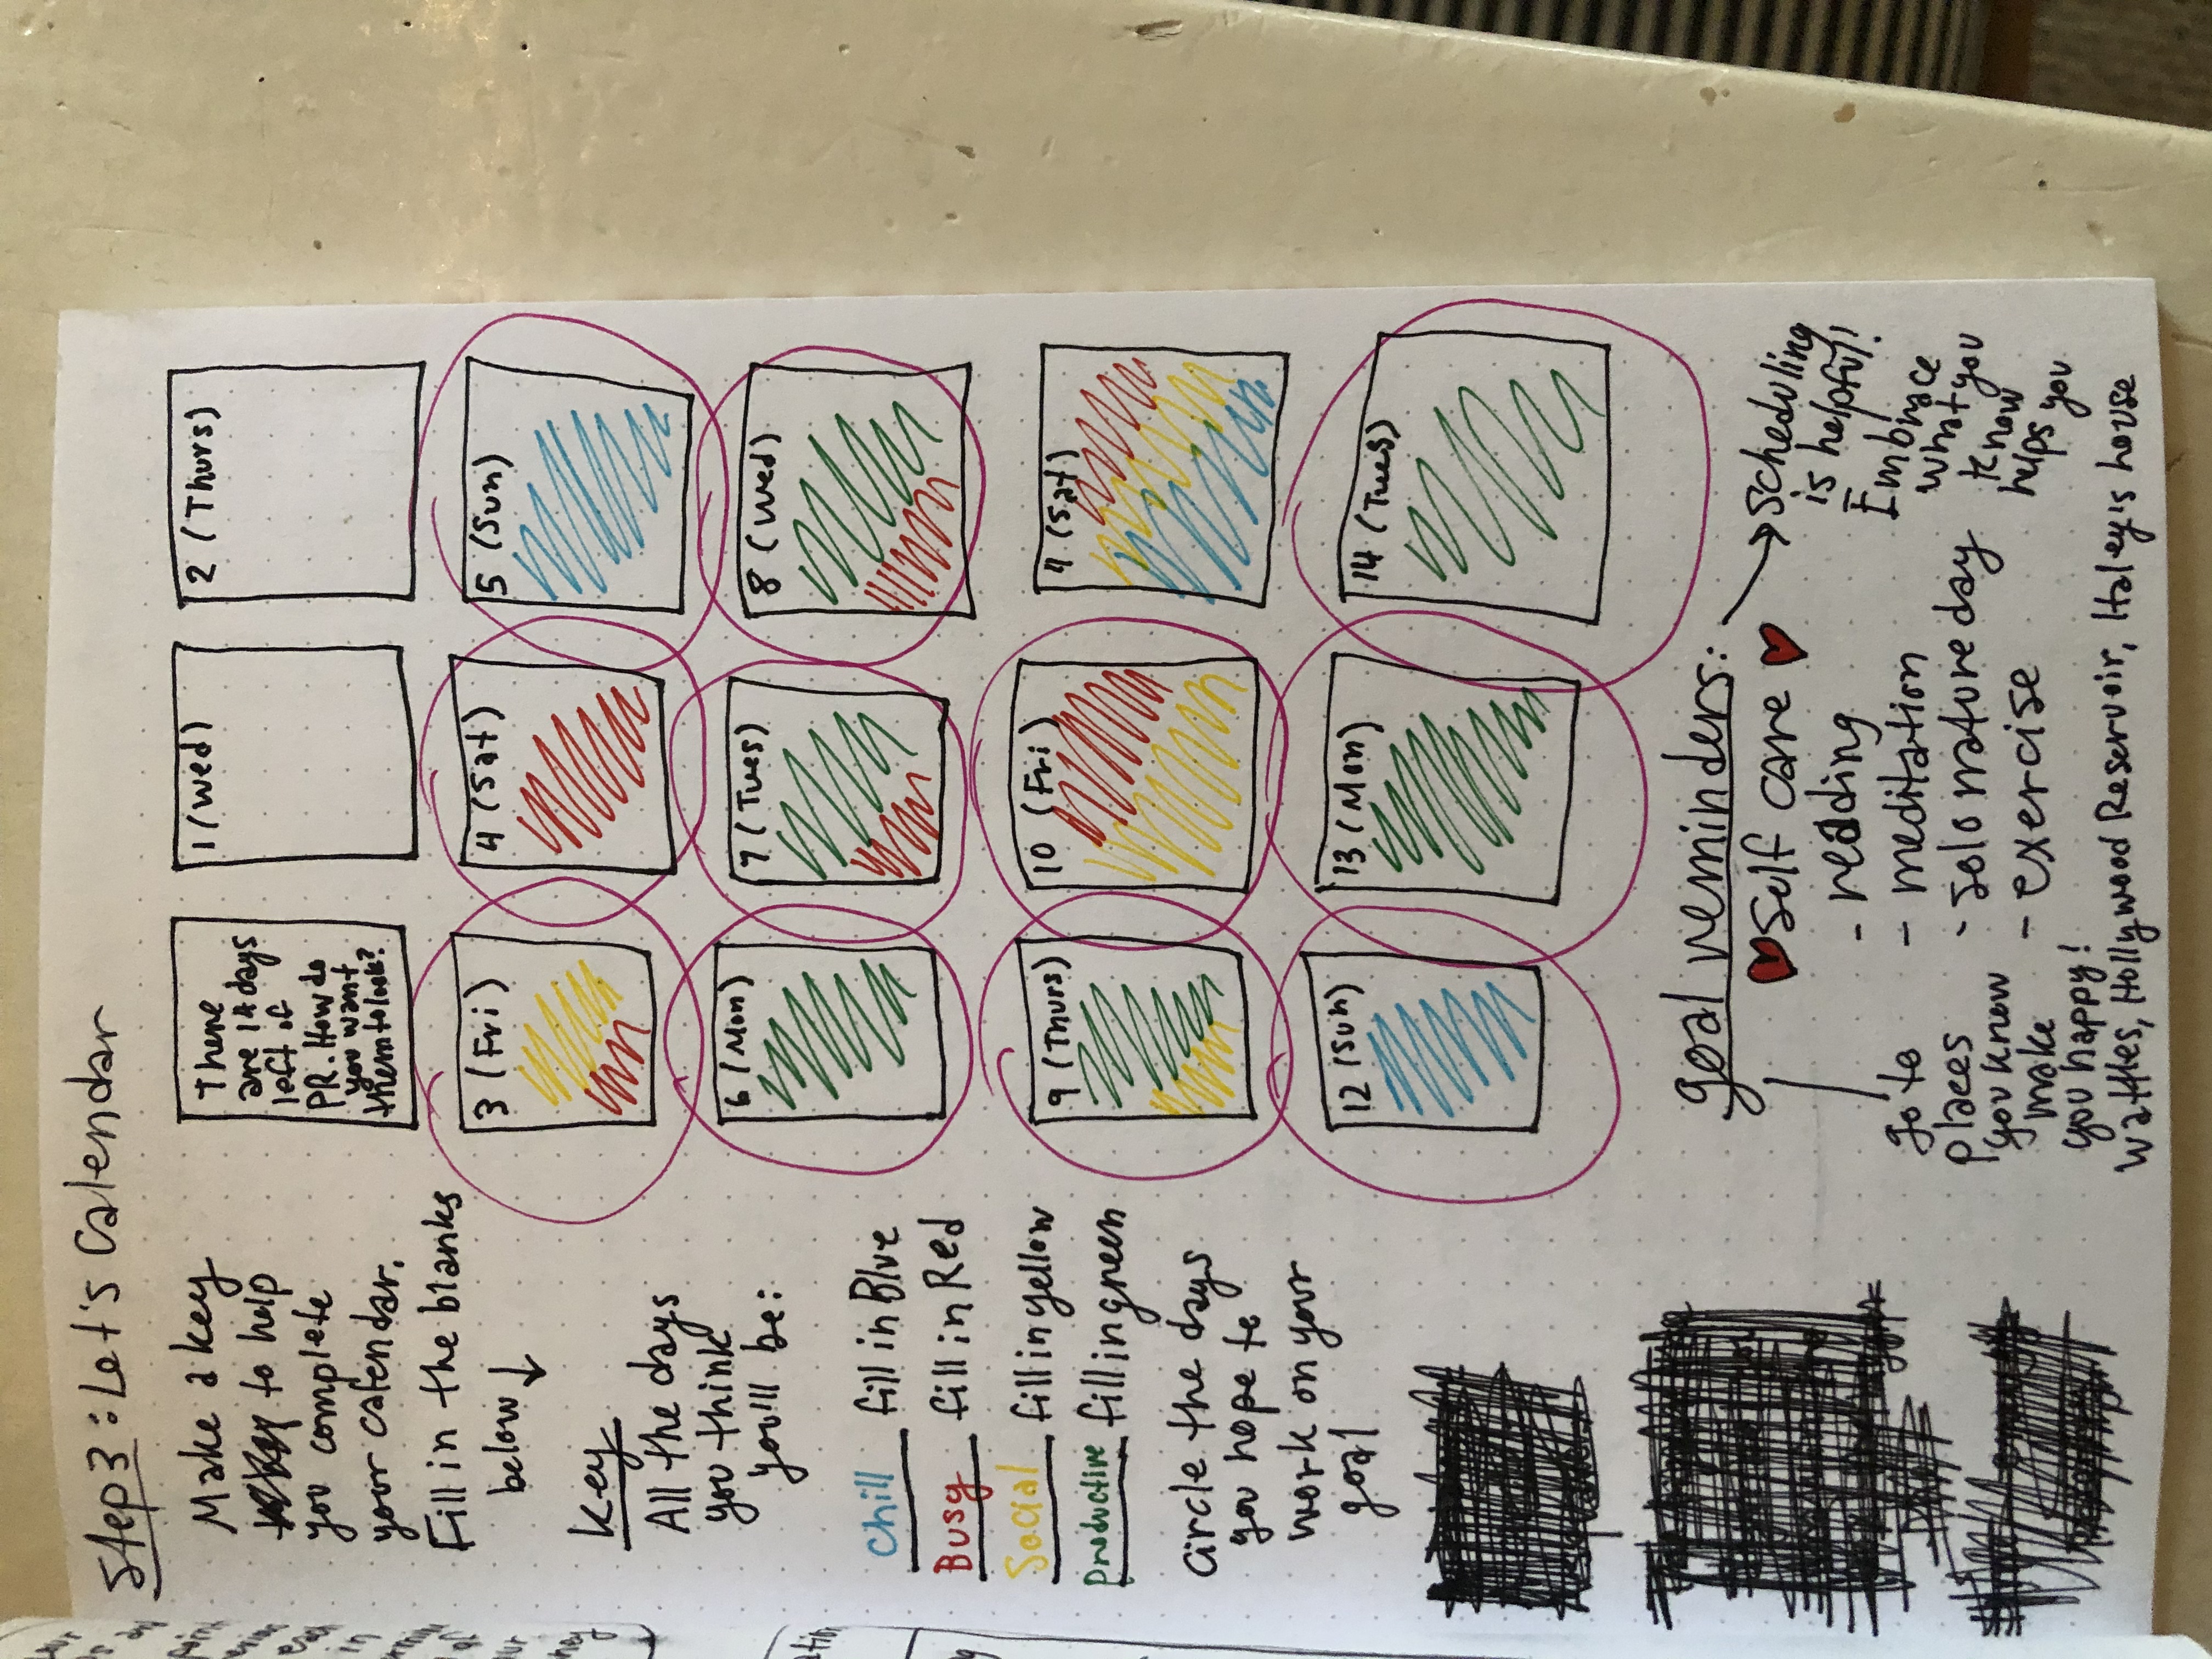 Step 3: Let's Calendar
Make a key
to help
you complete
your calendar.
Fill in the blanks
below ↓
Key
All the days
you think
you'll be:
Chill fill in Blue
Busy fill in Red
Social fill in yellow
Productive fill in green
Circle the days
you hope to
work on your
goal
There
are 14 days
left of
PR. How do
you want
them to look?
1 (wed)
2 (Thurs)
3 (Fri)
4 (Sat)
5 (Sun)
6 (Mon)
7 (Tues)
8 (Wed)
9 (Thurs)
10 (Fri)
11 (Sat)
12 (Sun)
13 (Mon)
14 (Tues)
Goal reminders:
Self care
- reading
- meditation
- solo nature day
- exercise
→ scheduling
is helpful!
Embrace
what you
know
helps you
go to
places
you know
make
you happy!
wattles, Hollywood Reservoir, Haley's house